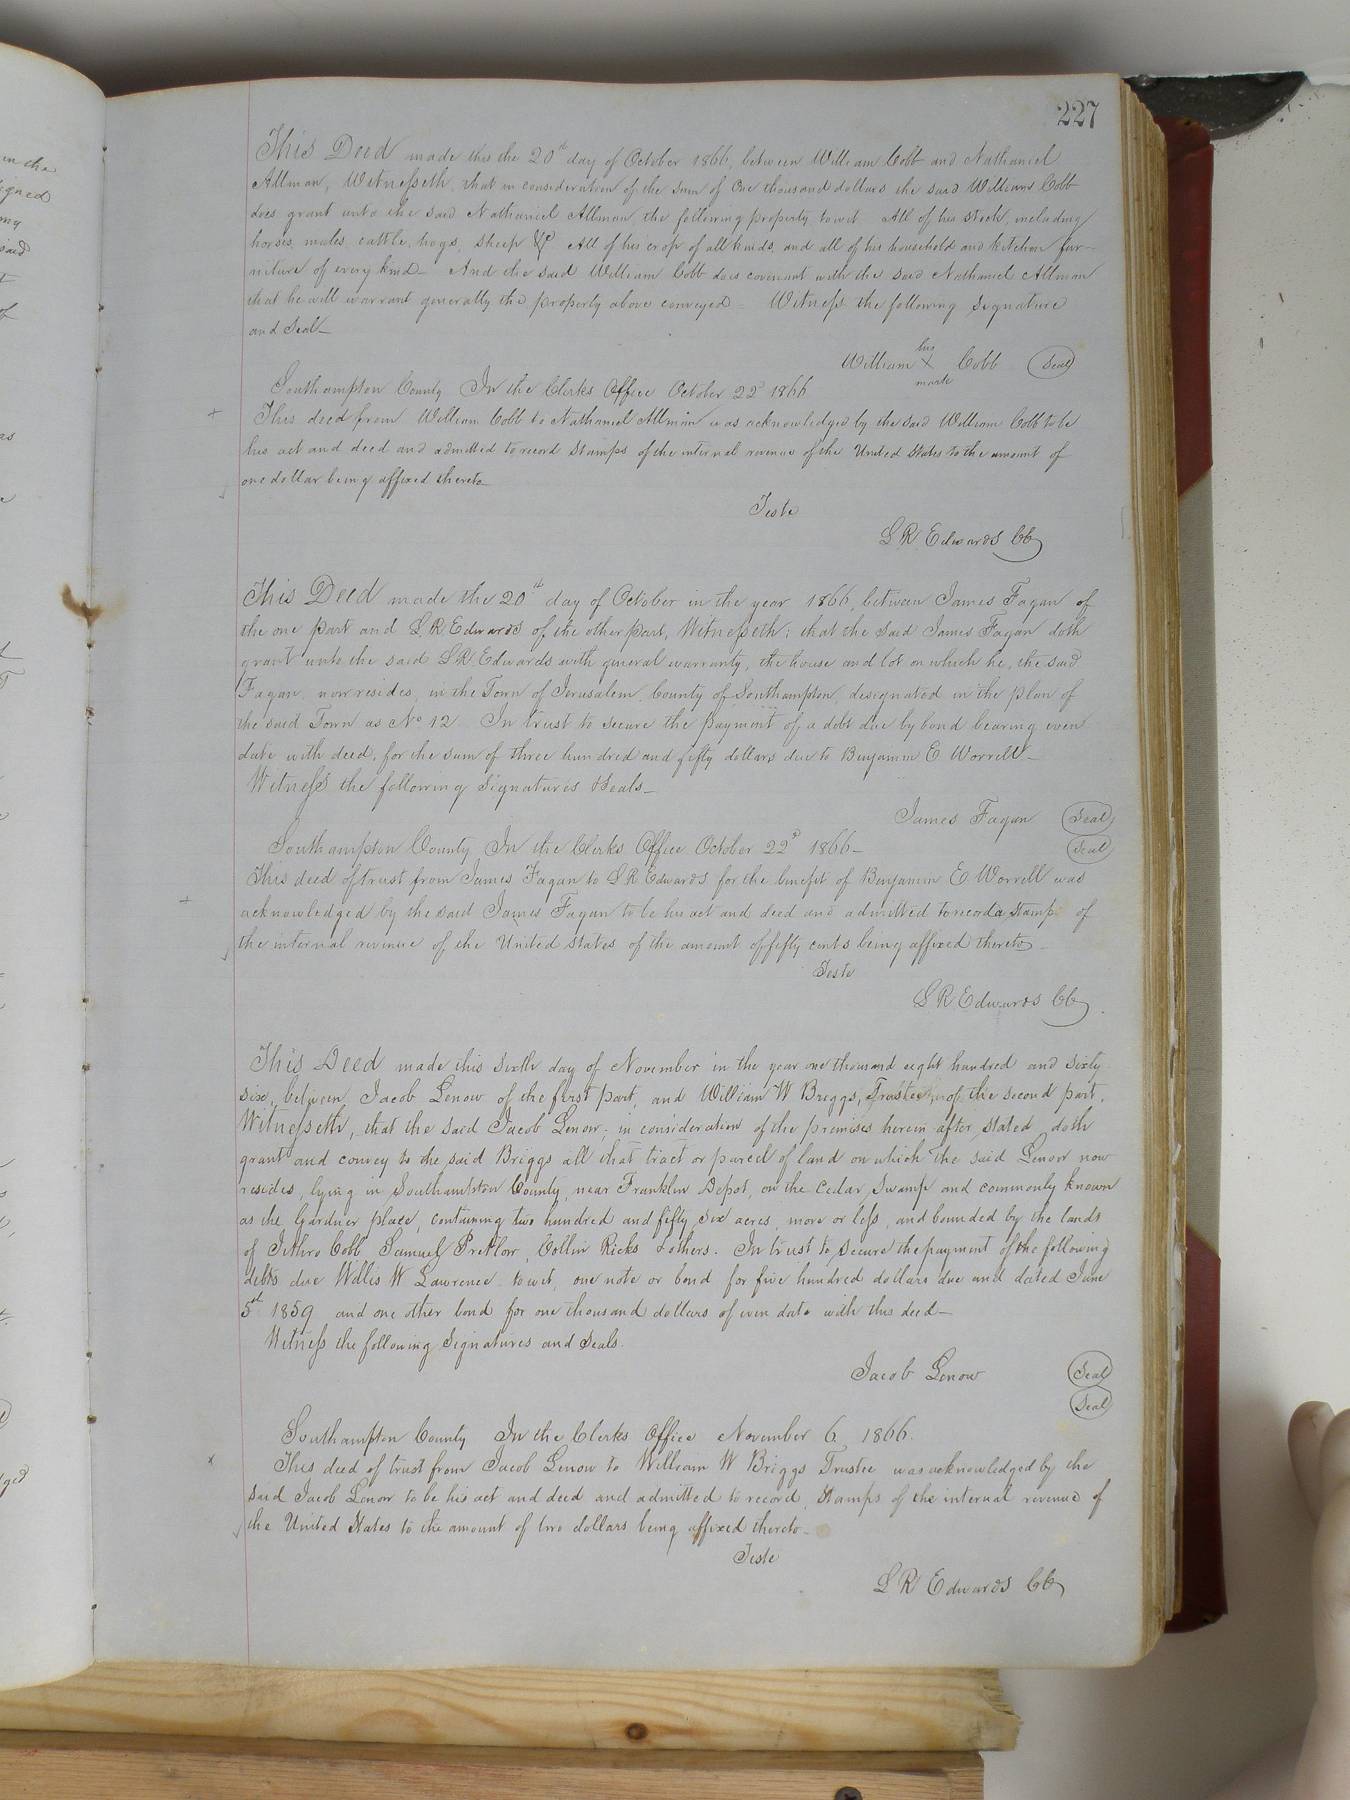 227
This Deed made this the 20th day of October 1866, between William Cobb and Nathaniel
Allman, Witnesseth, that in consideration of the sum of One thousand dollars the said William Cobb
does grant unto the said Nathaniel Allman the following property towit All of his stock, including
horses, mules, cattle, hogs, sheep &c All of his crop of all kinds, and all of his household and kitchen fur-
niture of every kind— And the said William Cobb does covenant with the said Nathaniel Allman
that he will warrant generally the property above conveyed— Witness the following signature
and seal—
William his X mark Cobb Seal
Southampton County In the Clerks Office October 22d 1866
This deed from William Cobb to Nathaniel Allman was acknowledged by the said William Cobb to be
his act and deed and admitted to record Stamps of the internal revenue of the United States to the amount of
one dollar being affixed thereto
Teste
L R Edwards CC
This Deed made the 20th day of October in the year 1866, between James Fagan of
the one part and L R Edwards of the other part, Witnesseth; that the said James Fagan doth
grant unto the said L R Edwards with general warranty, the house and lot on which he, the said
Fagan, now resides, in the Town of Jerusalem, County of Southampton, designated in the plan of
the said Town as No 12 In trust to secure the payment of a debt due by bond bearing even
date with deed, for the sum of three hundred and fifty dollars due to Benjamin E Worrell—
Witness the following signatures & seals—
James Fagan Seal
Seal
Southampton County In the Clerks Office October 22d 1866—
This deed of trust from James Fagan to L R Edwards for the benefit of Benjamin E Worrell was
acknowledged by the said James Fagan to be his act and deed and admitted to record a stamp of
the internal revenue of the United States of the amount of fifty cents being affixed thereto—
Teste
L R Edwards CC
This Deed made this sixth day of November in the year one thousand eight hundred and sixty
six, between Jacob Lenow of the first part, and William W Briggs, Trustee, of the second part,
Witnesseth, that the said Jacob Lenow, in consideration of the premises herein after stated doth
grant and convey to the said Briggs all that tract or parcel of land on which the said Lenow now
resides, lying in Southampton County, near Franklin Depot, on the Cedar Swamp and commonly known
as the Gardner place, containing two hundred and fifty six acres, more or less, and bounded by the lands
of Jethro Cobb, Samuel Pretlow, Collin Ricks & others. In trust to secure the payment of the following
debts due Willis W Lawrence towit, one note or bond for five hundred dollars due and dated June
5th 1859 and one other bond for one thousand dollars of even date with this deed—
Witness the following signatures and seals.
Jacob Lenow Seal
Seal
Southampton County In the Clerks Office November 6 1866.
This deed of trust from Jacob Lenow to William W Briggs Trustee was acknowledged by the
said Jacob Lenow to be his act and deed and admitted to record, Stamps of the internal revenue of
the United States to the amount of two dollars being affixed thereto—
Teste
L R Edwards CC